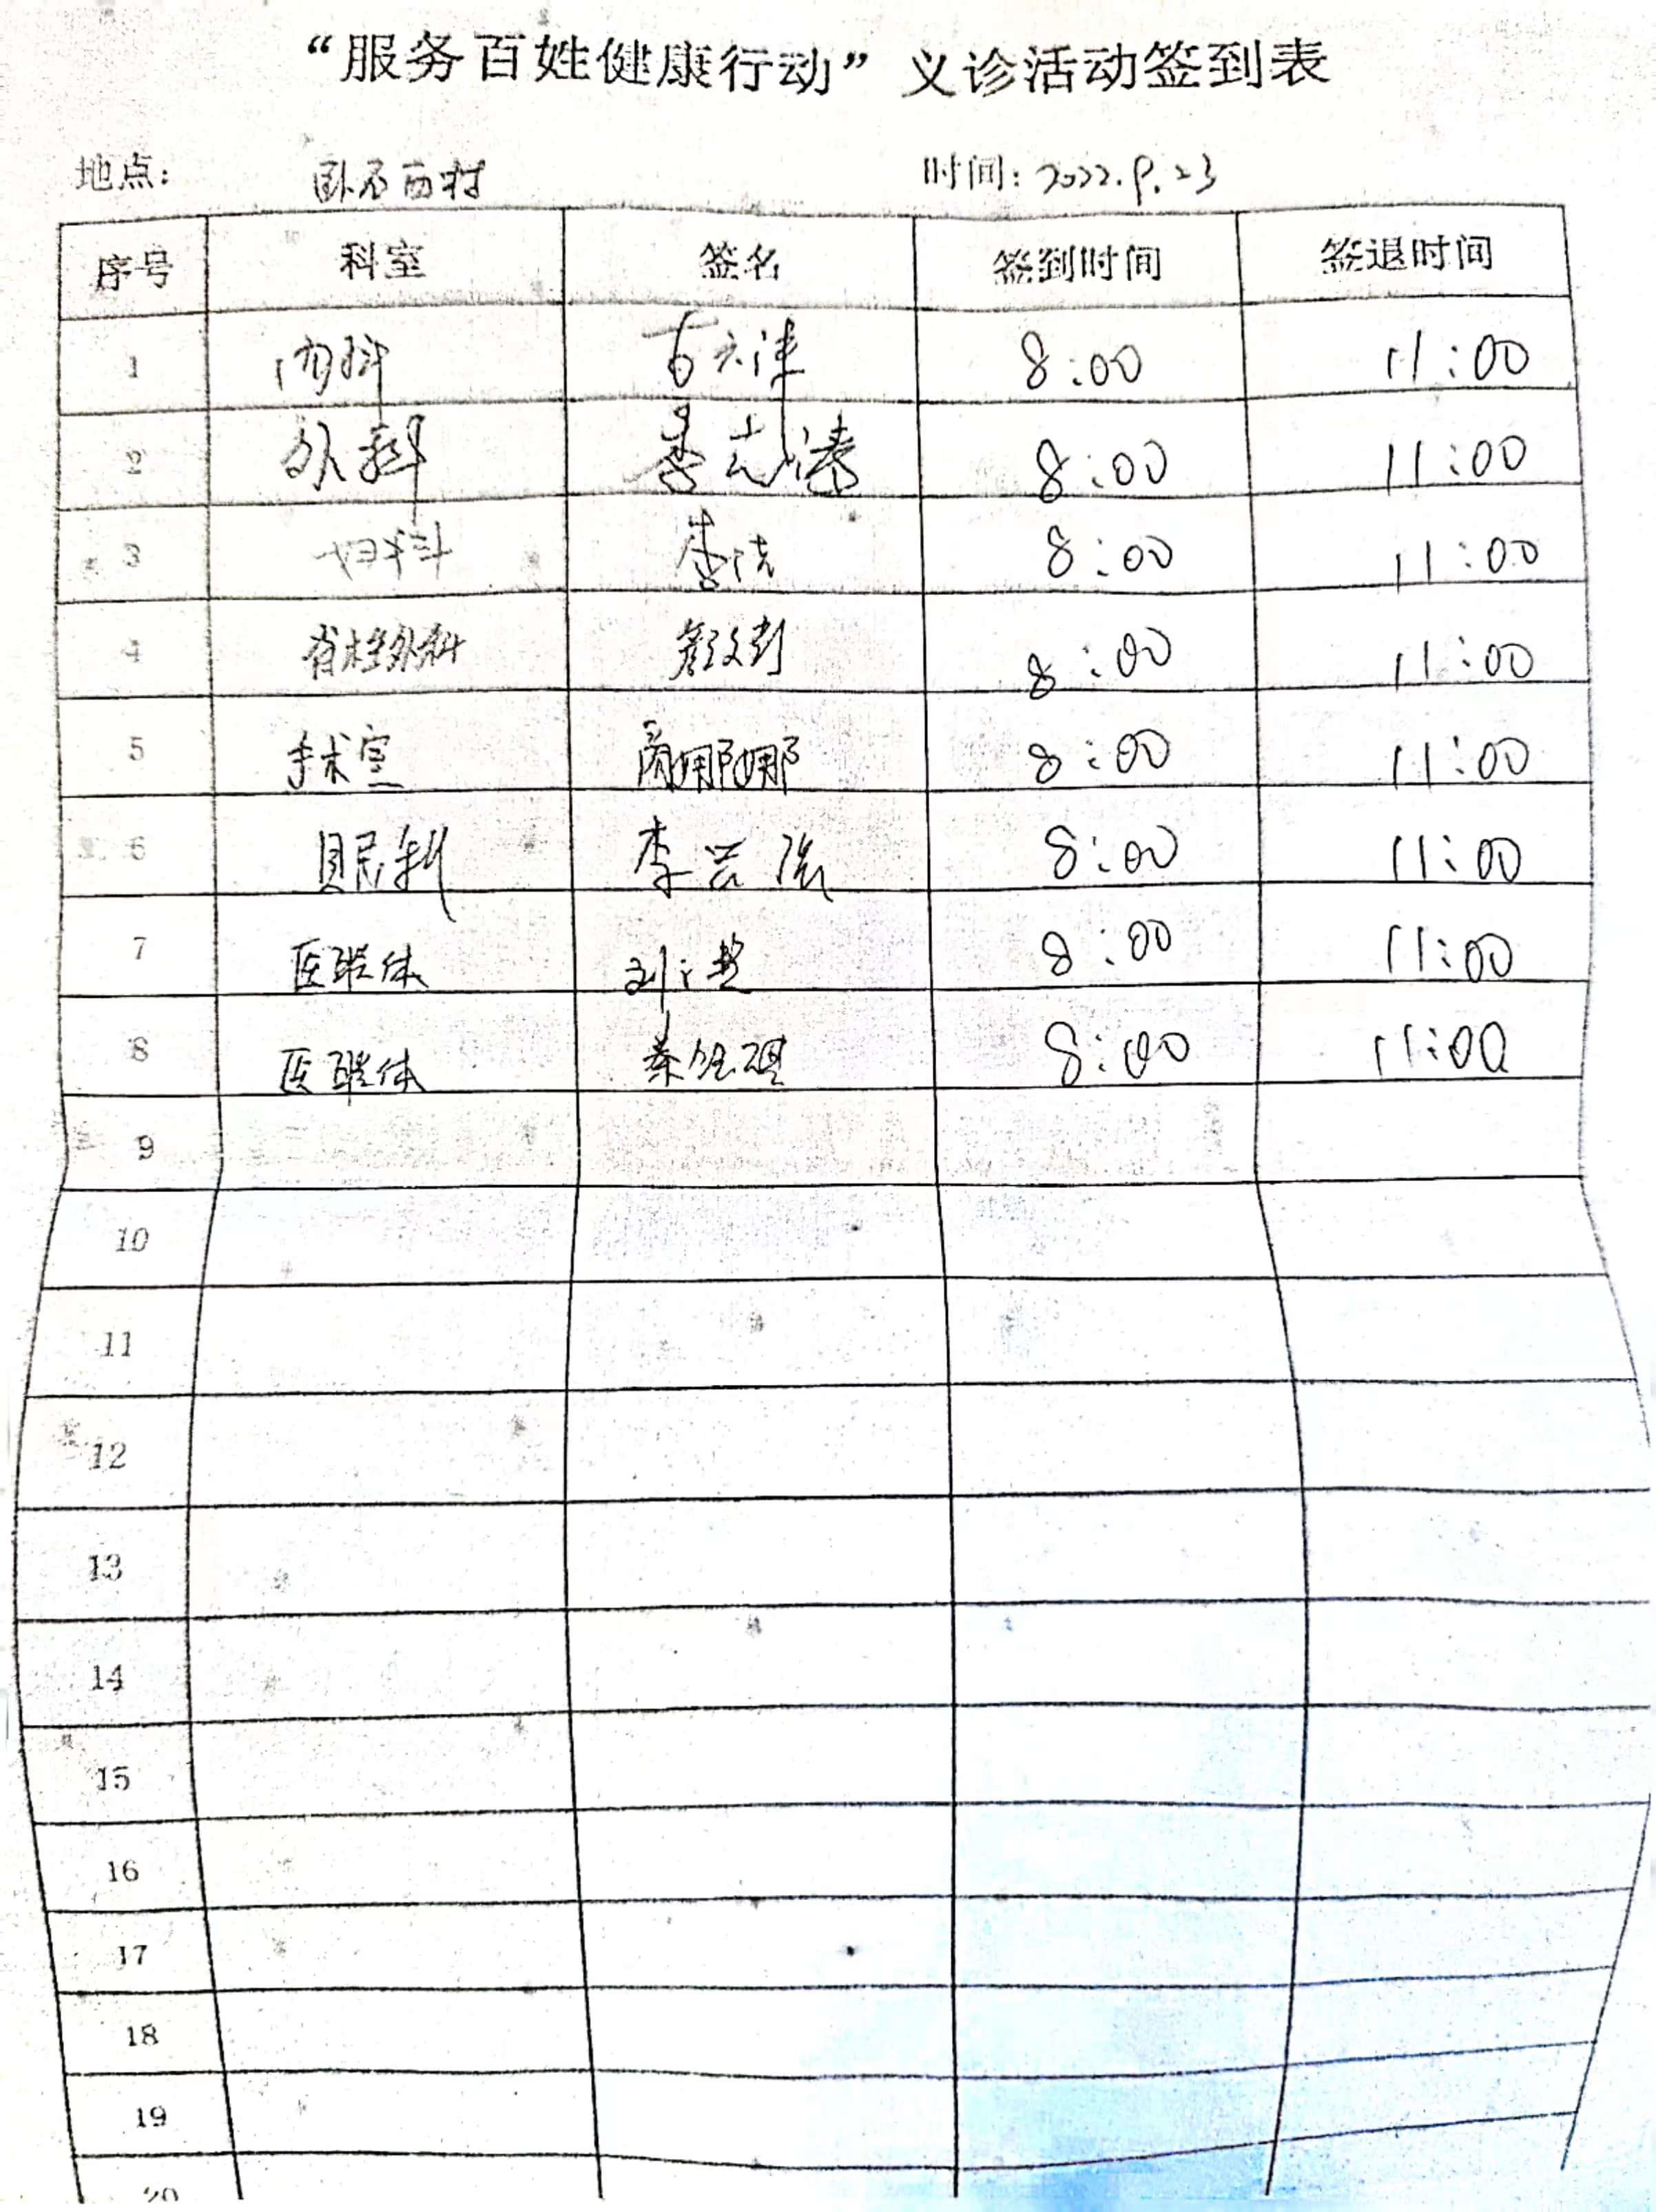 “服务百姓健康行动”义诊活动签到表
地点: 卧石西村 时间: 2022.9.23
序号 科室 签名 签到时间 签退时间
1 内科 8:00 11:00
2 外科 8:00 11:00
3 妇科 8:00 11:00
4 脊柱外科 8:00 11:00
5 手术室 8:00 11:00
6 眼科 李 8:00 11:00
7 医联体 刘 8:00 11:00
8 医联体 秦 8:00 11:00
9
10
11
12
13
14
15
16
17
18
19
20